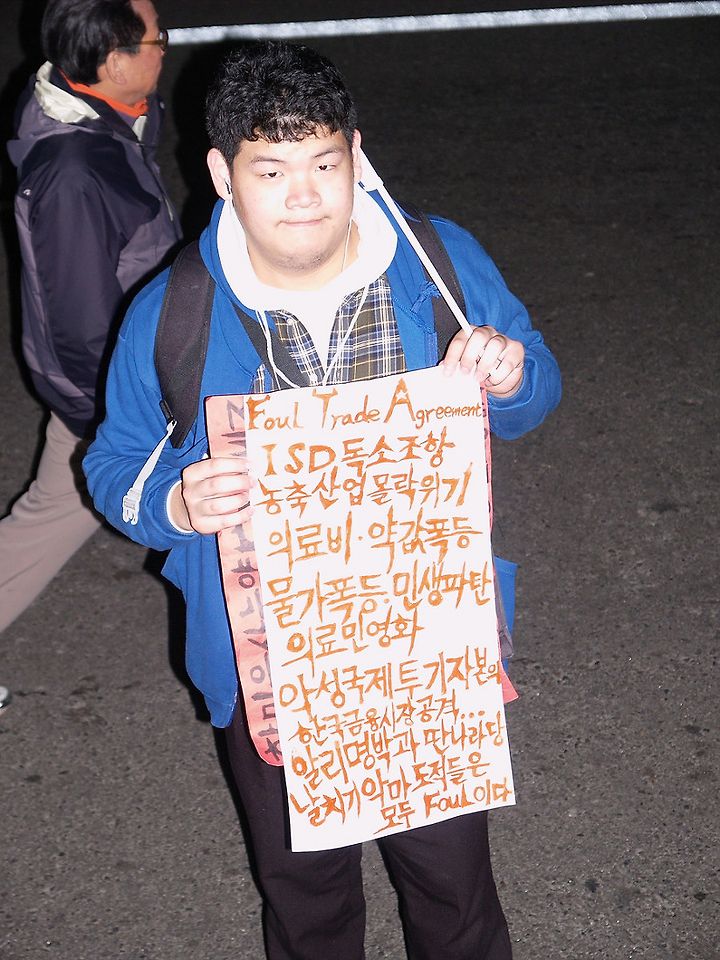 Foul Trade Agreement
ISD 독소조항
농축산업 몰락위기
의료비·약값폭등
물가폭등, 민생파탄
의료민영화
악성국제투기자본의
한국금융시장공격...
알리명박과 딴나라당
날치기 악마 도적들은
모두 Foul이다